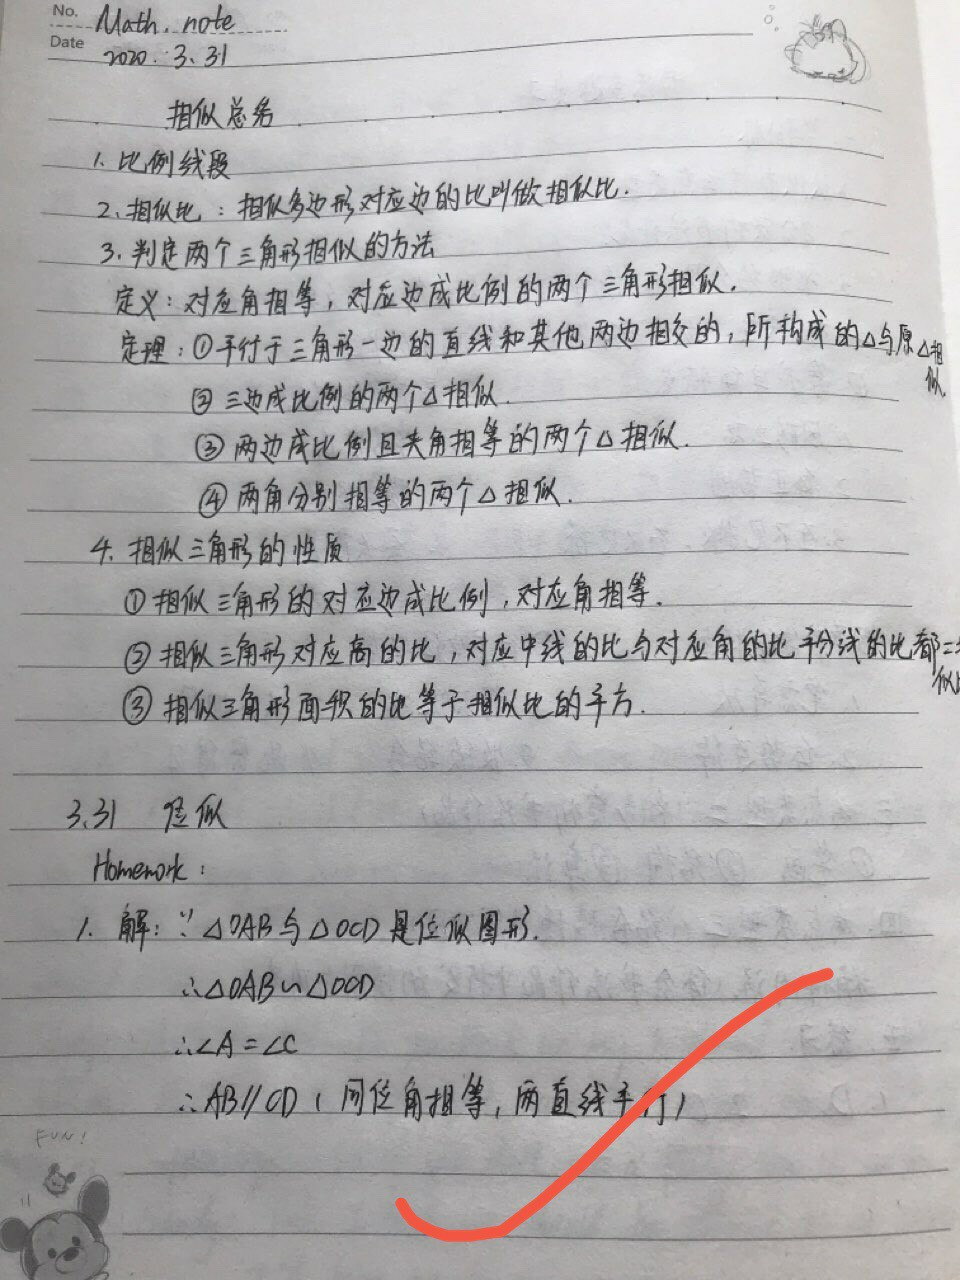 No. Math. note
Date 2020. 3. 31
相似总务
1. 比例线段
2. 相似比：相似多边形对应边的比叫做相似比.
3. 判定两个三角形相似的方法
定义：对应角相等，对应边成比例的两个三角形相似.
定理：①平行于三角形一边的直线和其他两边相交的，所构成的△与原△相似
② 三边成比例的两个△相似.
③ 两边成比例且夹角相等的两个△相似.
④ 两角分别相等的两个△相似.
4. 相似三角形的性质
① 相似三角形的对应边成比例，对应角相等.
② 相似三角形对应高的比，对应中线的比与对应角的比平分线的比都=
似比
③ 相似三角形面积的比等于相似比的平方.
3.31 位似
Homework：
1. 解：∵△OAB与△OCD是位似图形.
∴△OAB∽△OCD
∴∠A=∠C
∴AB//CD（同位角相等，两直线平行）
FUN!